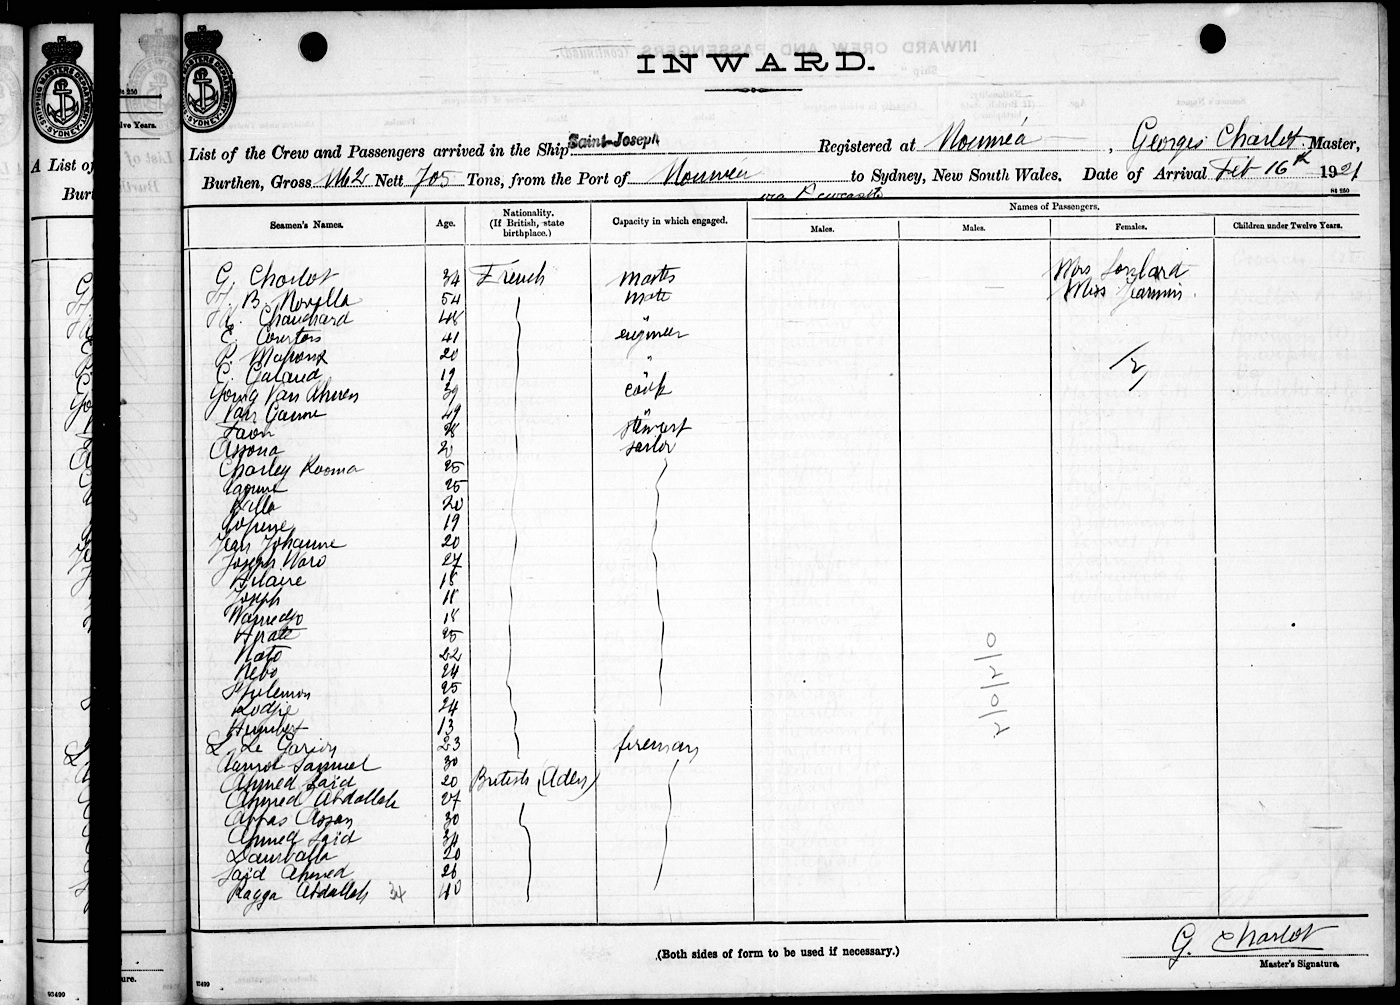 INWARD.
List of the Crew and Passengers arrived in the Ship Saint-Joseph Registered at Nouméa, Georges Charlot Master,
Burthen, Gross Nett 705 Tons, from the Port of Nouméa to Sydney, New South Wales, Date of Arrival Feb 16th 1921
via Newcastle
S4 250
Seamen's Names. Age. Nationality. (If British, state birthplace.) Capacity in which engaged. Names of Passengers.
Males. Males. Females. Children under Twelve Years.
G. Charlot 34 French Master Mrs Lombard
B. Novella 54 mate Miss
Chauchard 48 "
E. Courtois 41 engineer
P. 20 "
C. Galaud 19
Young Van 39 cook
Van 49 "
38 stewart
Assona 20 sailor
Charley Kooma 25
25
Willo 20
19
Jean Johanne 20
Joseph Waro 27
Hilaire 18
Joseph 18
Wamedjo 18
25
Nato 22
Nebo 24
Philemon 25
Kodje 24
Humbert 13
L. Le 23 fireman
Samuel 30
Ahmed Saïd 20 British (Aden)
Ahmed Abdallah 27
Abbas Assan 30
Ahmed Saïd 34
20
Saïd Ahmed 26
Ragga Abdallah 34 40
2/0/2/0
(Both sides of form to be used if necessary.)
G. Charlot
Master's Signature.
SHIPPING MASTERS DEPARTMENT
SYDNEY
A List of
Burt
lve Years.
ure.
93499